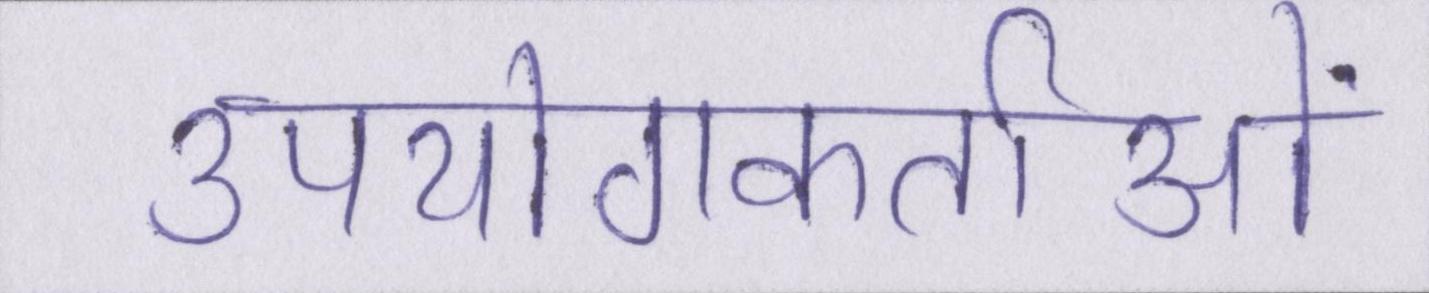 उपयोगकर्ताओं